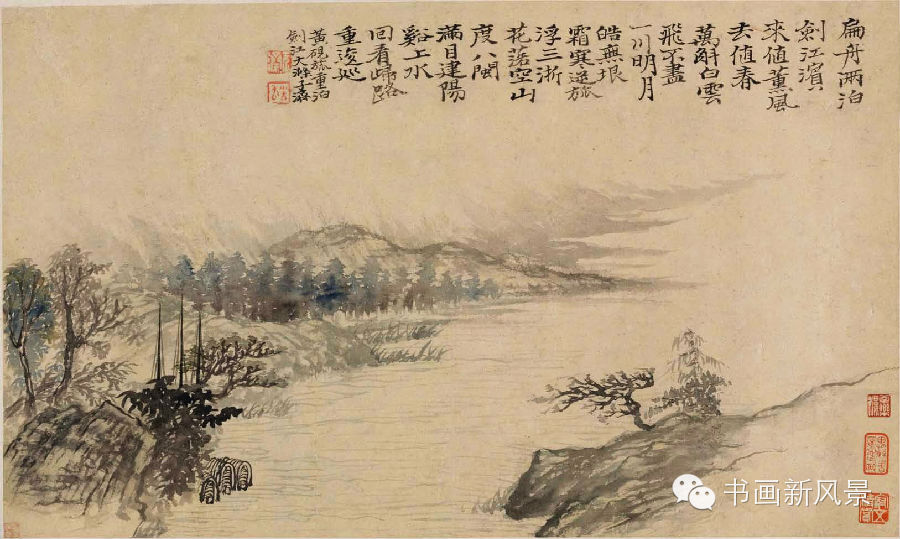 扁舟兩泊
劍江濱
來值薰風
去值春
萬斛白雲
飛不盡
一川明月
皓無垠
霜寒逆旅
浮三浙
花落空山
度八閩
滿目建陽
谿上水
回看歸路
重逡巡
黃硯旅重泊
劍江大滌子濟
书画新风景